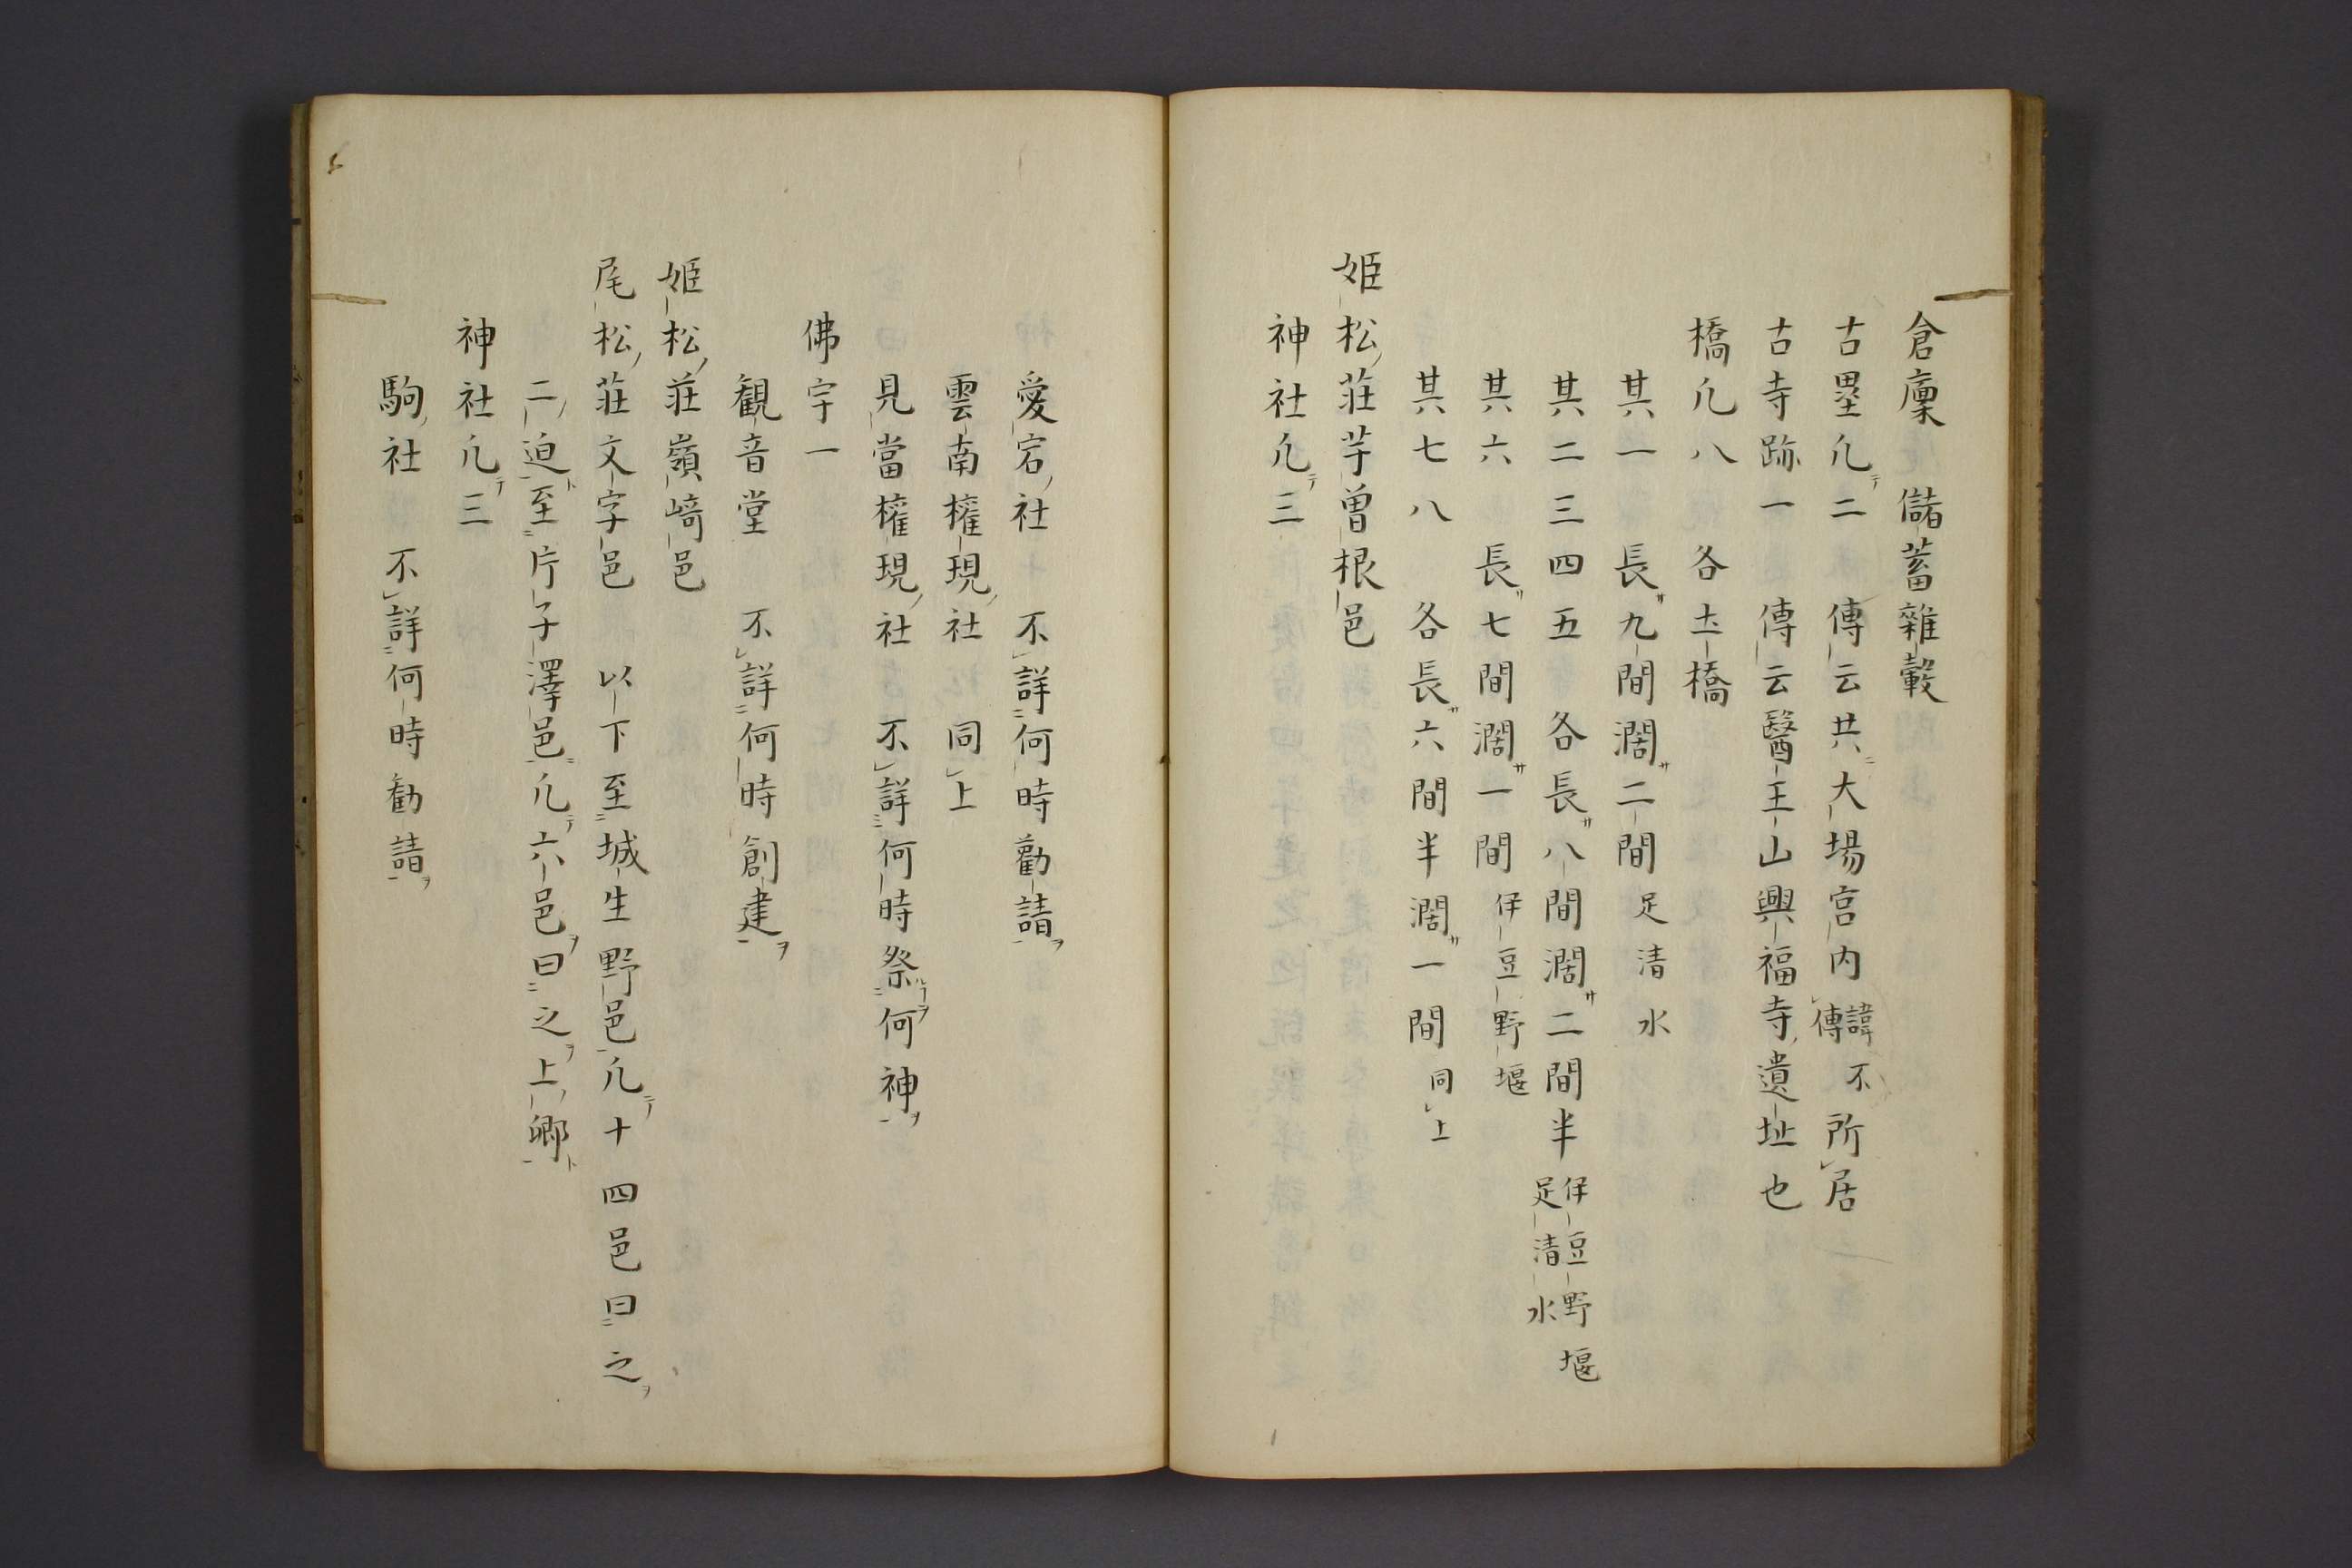 倉廩　儲蓄雜穀
古塁凢テ二　傳云共ニ大場宮内諱不傳所居
古寺跡一　傳云醫王山興福寺遺址也
橋凢八　各土橋
其一　長サ九間濶サ二間　足清水
其二三四五　各長サ八間濶サ二間半　伊豆野堰足清水
其六　長サ七間濶サ一間　伊豆野堰
其七八　各長サ六間半濶サ一間　同上
姫松ノ荘芋曽根邑
神社凢テ三
愛宕ノ社　不詳何時勸請ヲ
雲南權現ノ社　同上
見當權現ノ社　不詳何時祭何神ヲ
佛宇一
観音堂　不詳何時創建ヲ
姫松ノ荘嶺﨑邑
尾松ノ荘文字邑　以下至城生野邑凢テ十四邑曰之ヲ
二ノ迫ト至片子澤邑凢テ六邑ヲ曰之ヲ上ノ郷ト
神社凢テ三
駒ノ社　不詳何時勧請ヲ